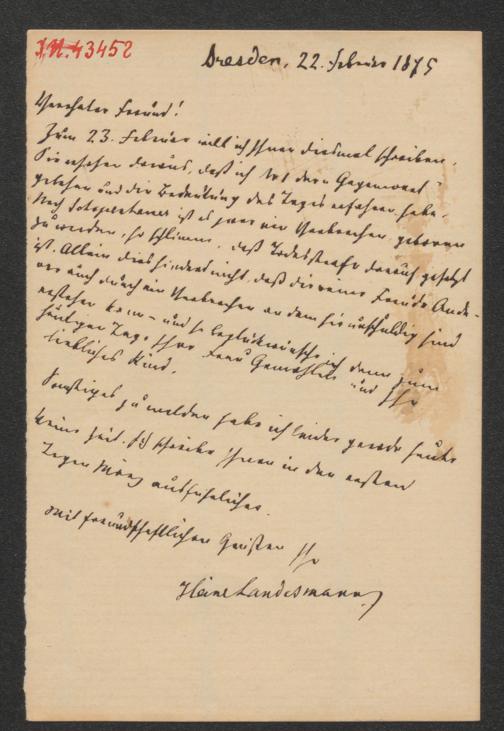 J.N. 43452
Dresden, 22. Februar 1875
Verehrter Freund!
Zum 23. Februar will ich Ihnen diesmal schreiben.
Sie ersehen daraus, daß ich trotz dem Gegenwart
gesehen und die Bedeutung des Tages erfahren habe.
Nach Schopenhauer ist es zwar ein Verbrechen geboren
zu werden, so schlimm, daß Todesstrafe darauf gesetzt
ist. Allein dies hindert nicht, daß die reine Freude Ande-
rer auch durch ein Verbrechen an dem sie unschuldig sind
entstehen kann – und so beglückwünsche ich denn zum
heutigen Tage Ihre Frau Gemahlin und Ihr
liebliches Kind.
Sonstiges zu melden habe ich leider gerade heute
keine Zeit. Ich schreibe Ihnen in den ersten
Tagen März ausführlicher.
Mit freundschaftlichen Grüßen Ihr
Hein. Landesmann